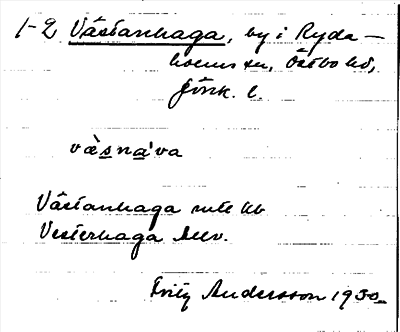 1-2 Västanhaga, by i Ryda-
holms sn, Östbo hd,
Jönk. l.
väsnava
Västanhaga
Vesterhaga
Fritz Andersson 1930